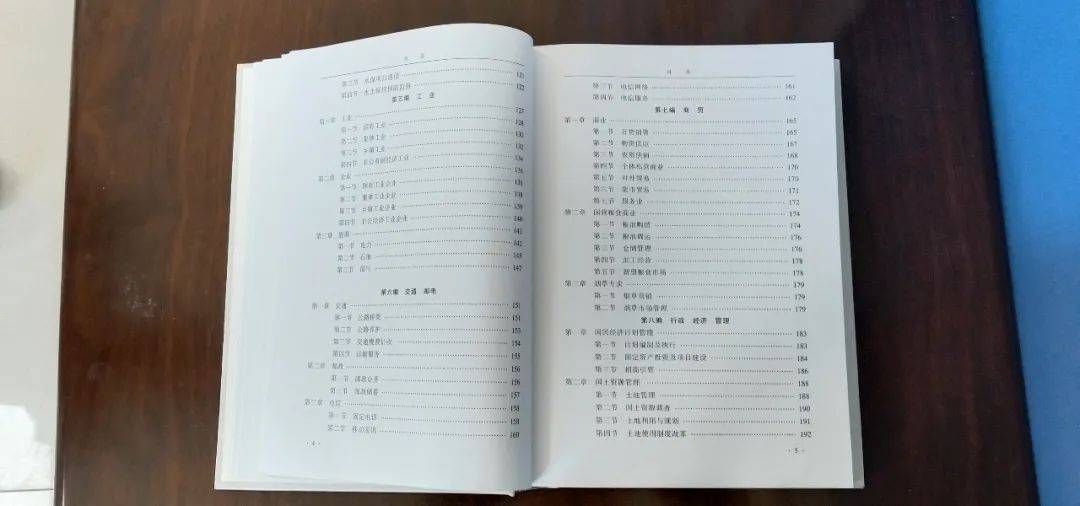 目 录
第三节 水保项目建设 121
第四节 水土保持预防监督 122
第五编 工 业
第一章 工业 127
第一节 国有工业 128
第二节 集体工业 130
第三节 乡镇工业 132
第四节 非公有制经济工业 134
第二章 企业 136
第一节 国有工业企业 136
第二节 集体工业企业 138
第三节 乡镇工业企业 139
第四节 非公经济工业企业 140
第三章 能源 141
第一节 电力 142
第二节 石油 145
第三节 煤气 147
第六编 交通 邮电
第一章 交通 151
第一节 公路桥梁 151
第二节 公路养护 153
第三节 交通规费征收 154
第四节 运输服务 155
第二章 邮政 156
第一节 邮政业务 156
第二节 邮政储蓄 157
第三章 电信 158
第一节 固定电话 158
第二节 移动通信 160
· 4 ·
目 录
第三节 电信网络 161
第四节 电信服务 162
第七编 商 贸
第一章 商业 165
第一节 百货销售 165
第二节 物资供应 167
第三节 农资供销 168
第四节 个体私营商业 170
第五节 对外贸易 170
第六节 集市贸易 171
第七节 服务业 172
第二章 国营粮食商业 174
第一节 粮油购销 174
第二节 粮油调运 176
第三节 仓储管理 176
第四节 加工经营 178
第五节 粮食市场 178
第三章 烟草专卖 179
第一节 烟草营销 179
第二节 烟草市场管理 179
第八编 行政 经济 管理
第一章 国民经济计划管理 183
第一节 计划编制及执行 183
第二节 固定资产投资及项目建设 184
第三节 招商引资 186
第二章 国土资源管理 188
第一节 土地管理 188
第二节 国土资源调查 190
第三节 土地利用与规划 191
第四节 土地使用制度改革 192
· 5 ·